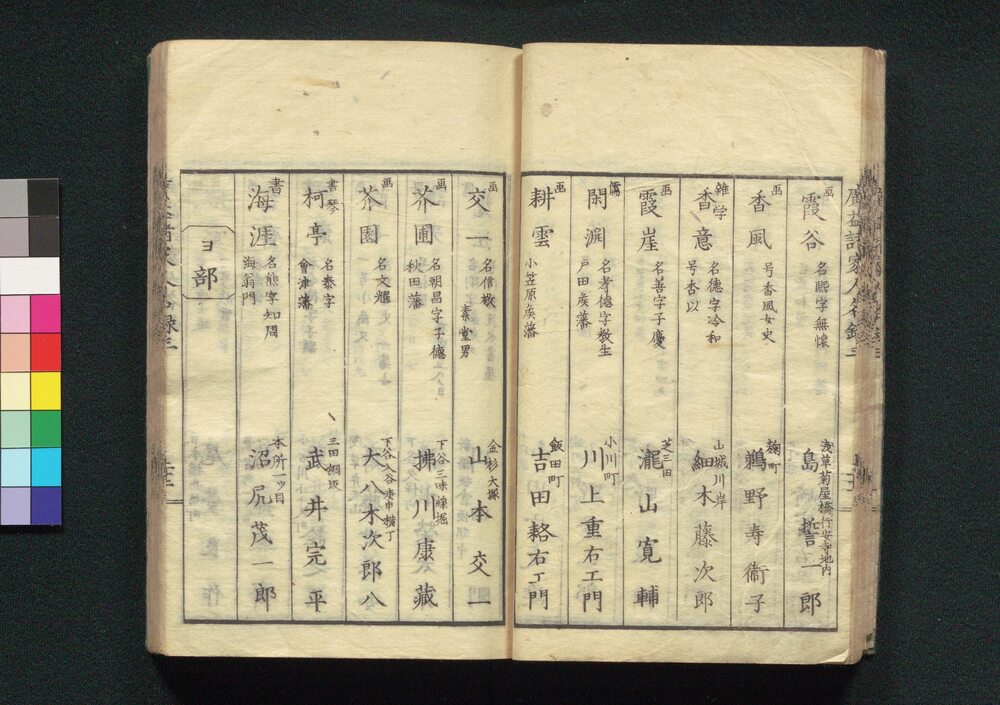 画
霞谷 名熙字無懐
浅草菊屋橋行安寺地内
島誓一郎
画
香風 号香風女史
麹町
鵜野寿衞子
雑学
香意 名德字冷和
号香以
山城川岸
細木藤次郎
画
霞崖 名善字子慶
芝三田
瀧山寛輔
儒
閑渕 名孝德字敬生
戸田矦藩
小川町
川上重右工門
画
耕雲
小笠原矦藩
飯田町
吉田耞右工門
画
交一 名信敬
素堂男
金杉大塚
山本交一
画
芥圃 名朝昌字子德
秋田藩
下谷三味線堀
拂川康藏
画
芥園 名文耀
下谷入谷庚申横丁
大八木次郎八
書琴
柯亭 名泰字
會津藩
三田綱坂
武井完平
書
海涯 名熊字知周
海翁門
本所一ッ目
沼尻茂一郎
ヨ部